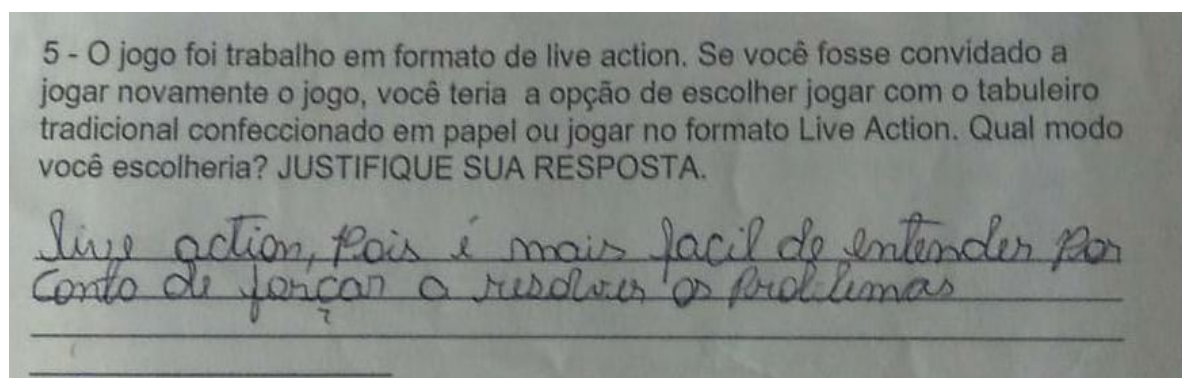 5 - O jogo foi trabalho em formato de live action. Se você fosse convidado a
jogar novamente o jogo, você teria a opção de escolher jogar com o tabuleiro
tradicional confeccionado em papel ou jogar no formato Live Action. Qual modo
você escolheria? JUSTIFIQUE SUA RESPOSTA.
live action, pois é mais facil de entender por
conta de forçar a resolver os problemas